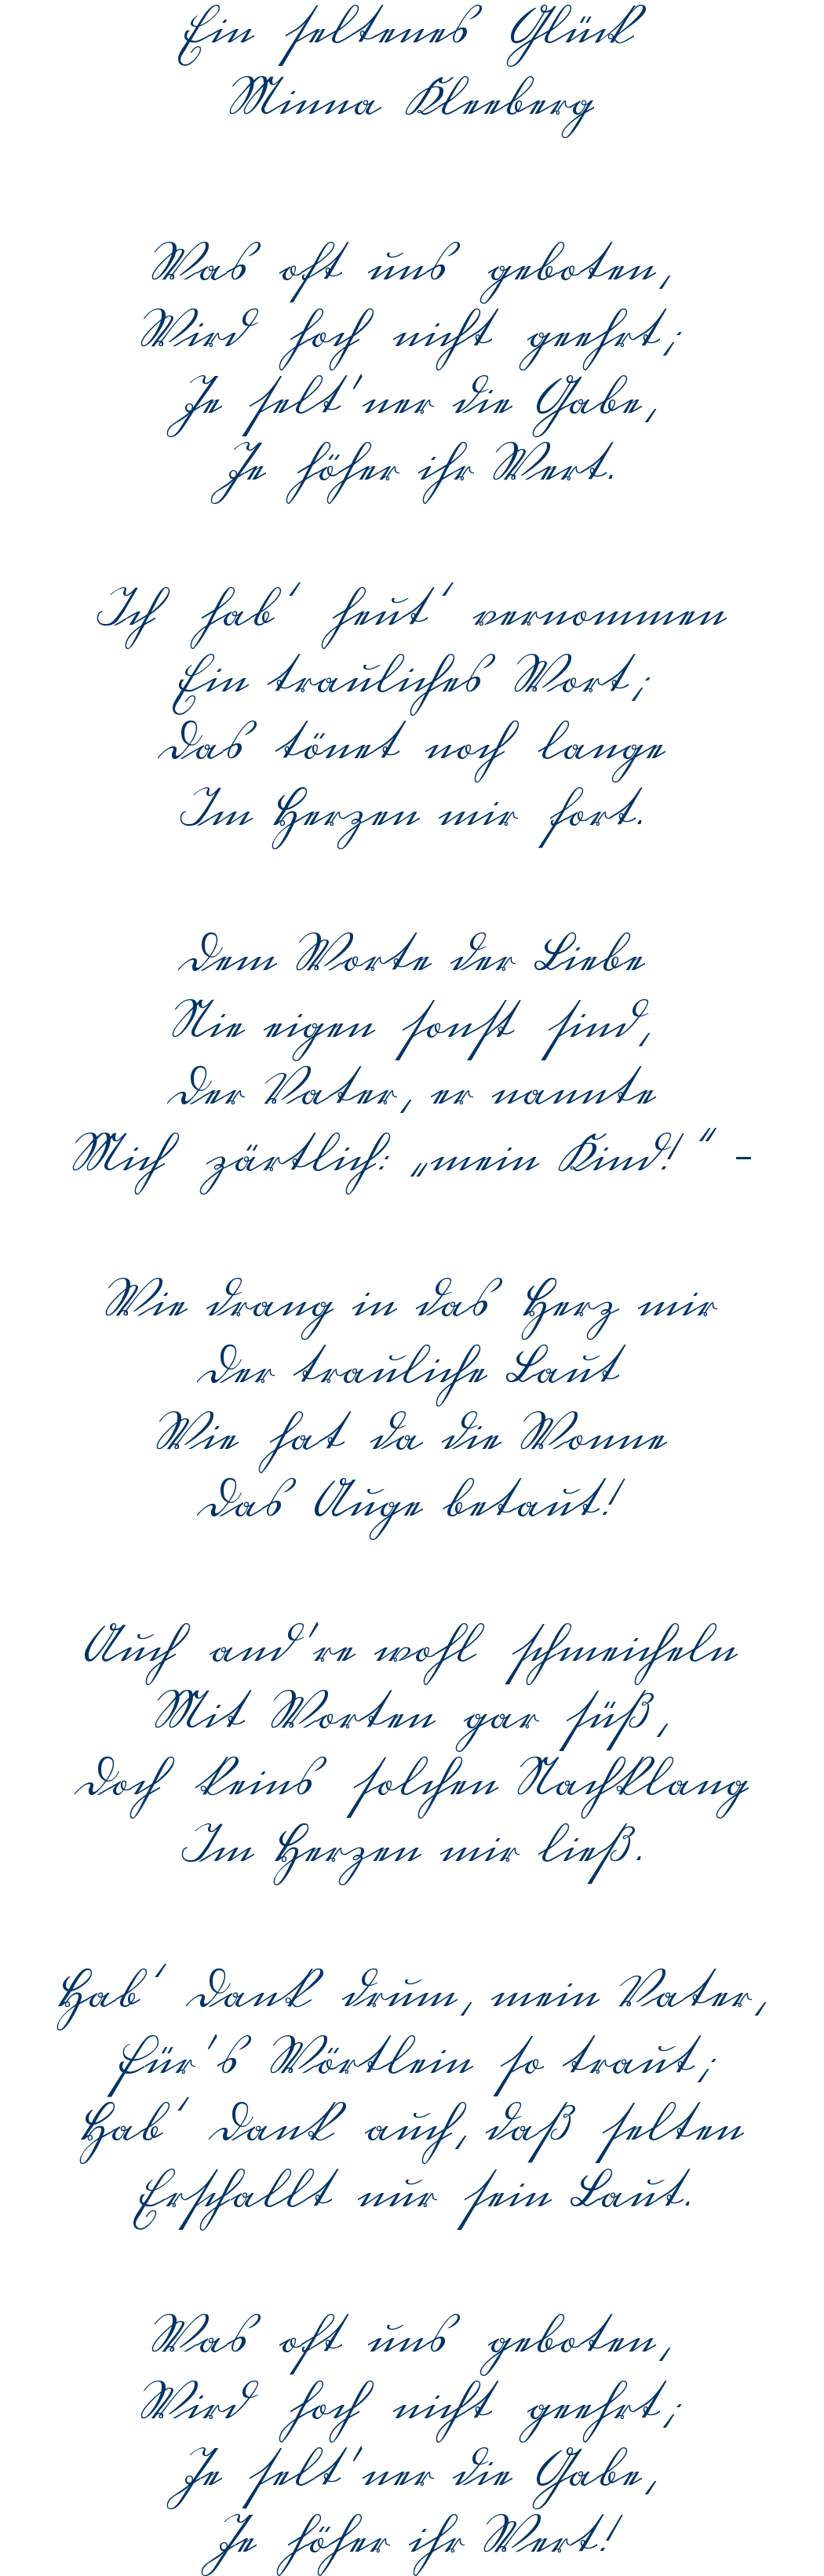 Ein seltenes Glück
Minna Kleeberg
Was oft uns geboten,
Wird hoch nicht geehrt;
Je selt'ner die Gabe,
Je höher ihr Wert.
Ich hab' heut' vernommen
Ein trauliches Wort;
Das tönet noch lange
Im Herzen mir fort.
Dem Worte der Liebe
Nie eigen sonst sind,
Der Vater, er nannte
Mich zärtlich: „mein Kind!" –
Wie drang in das Herz mir
Der trauliche Laut
Wie hat da die Wonne
Das Auge betaut!
Auch and're wohl schmeicheln
Mit Worten gar süß,
Doch keins solchen Nachklang
Im Herzen mir ließ.
Hab' Dank drum, mein Vater,
Für's Wörtlein so traut;
Hab' Dank auch, daß selten
Erschallt nur sein Laut.
Was oft uns geboten,
Wird hoch nicht geehrt;
Je selt'ner die Gabe,
Je höher ihr Wert!